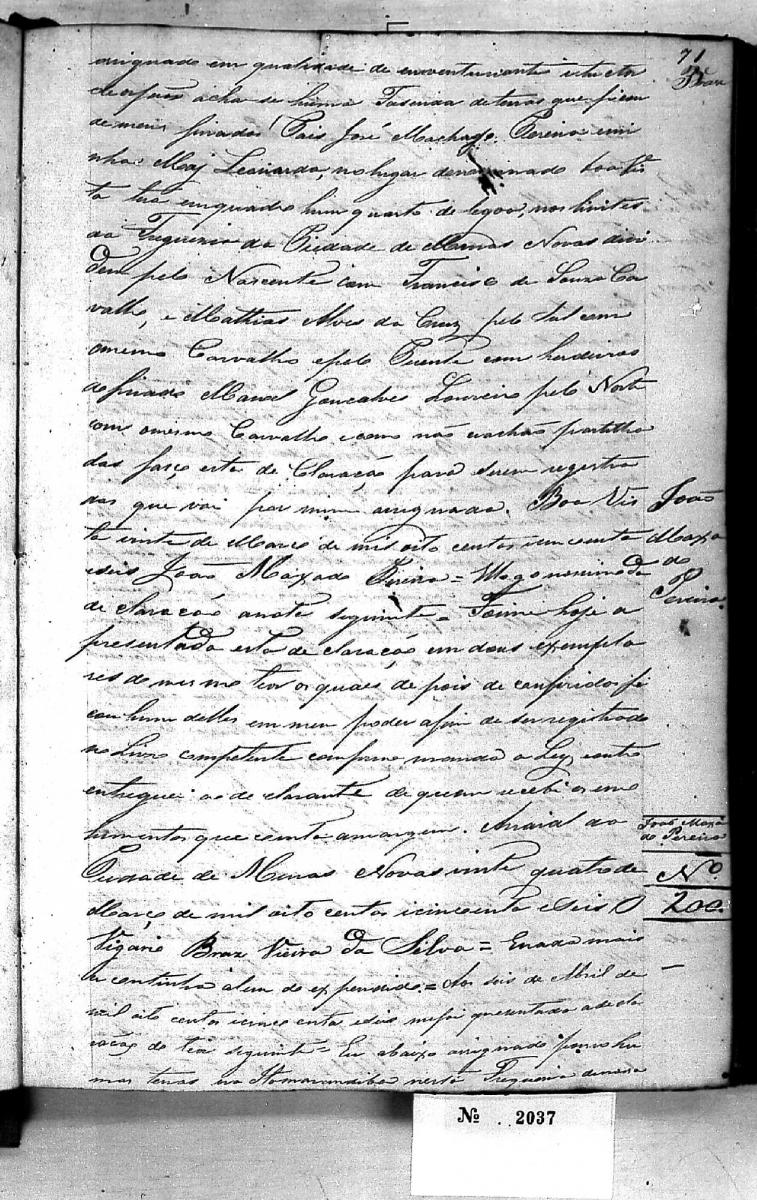 71
asignado em qualidade de enventuriante e tutor
de orfaos acha se huma Fasenda de terras que ficou
de meus finados Pais José Machado Pereira e mi
nha Maj Leonarda, no lugar denominado boa Vis
ta tera em quadro hum quarto de legoa, nos limites
da Freguezia da Piedade de Minas Novas divi
dem pelo Nascente com Francisco de Souza Car
valho, e Mathias Alves da Cruz pelo Sul com
o mesmo Carvalho e pelo Puente com herdeiros
do finado Manoel Goncalves Loureiro pelo Norte
com o mesmo Carvalho e como não se achao partilha
das faço esta de Claração para serem registra
das que vai por mim asignada. Boa Vis
ta vinte de Março de mil oito centos e cincoenta
e seis João Maxado Pereira =
de claração a nota seguinte = Foi me hoje a
presentada esta de claração em dous exempla
res do mesmo teor os quaes de pois de conferidos fi
cou hum delles em meu poder afim de ser registrado
no Livro competente conforme manda a Ley e outro
entreguei ao de clarante de quem recebi os emo
lumentos que consta a margem. Arraial da
Piedade de Minas Novas vinte quatro de
Março de mil oito centos e cincoenta e seis O
Vigario Braz Vieira da Silva = E nada mais
se continha alem do expendido. = Aos seis de Abril de
mil oito centos e cincoenta e seis me foi apresentada a decla
ração do teor seguinte = Eu abaixo asignado possuo hu
mas terras em Itamarandiba nesta Freguezia
João
Maxa
do
Pereira
João Maxa
do Pereira
Nº
200
Nº 2037